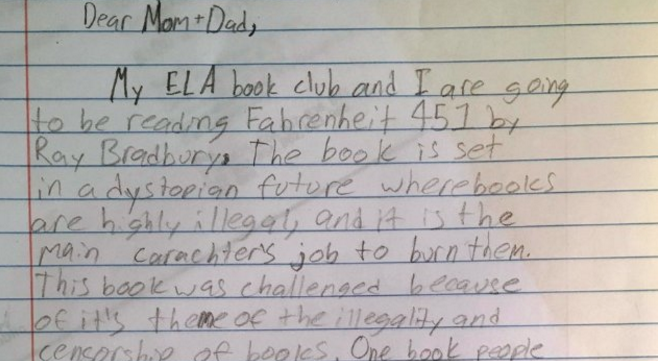 Dear Mom+Dad,
My ELA book club and I are going
to be reading Fahrenheit 451 by
Ray Bradbury. The book is set
in a dystopian future where books
are highly illegal, and it is the
main carachter's job to burn them.
This book was challenged because
of it's theme of the illegality and
censorship of books. One book people